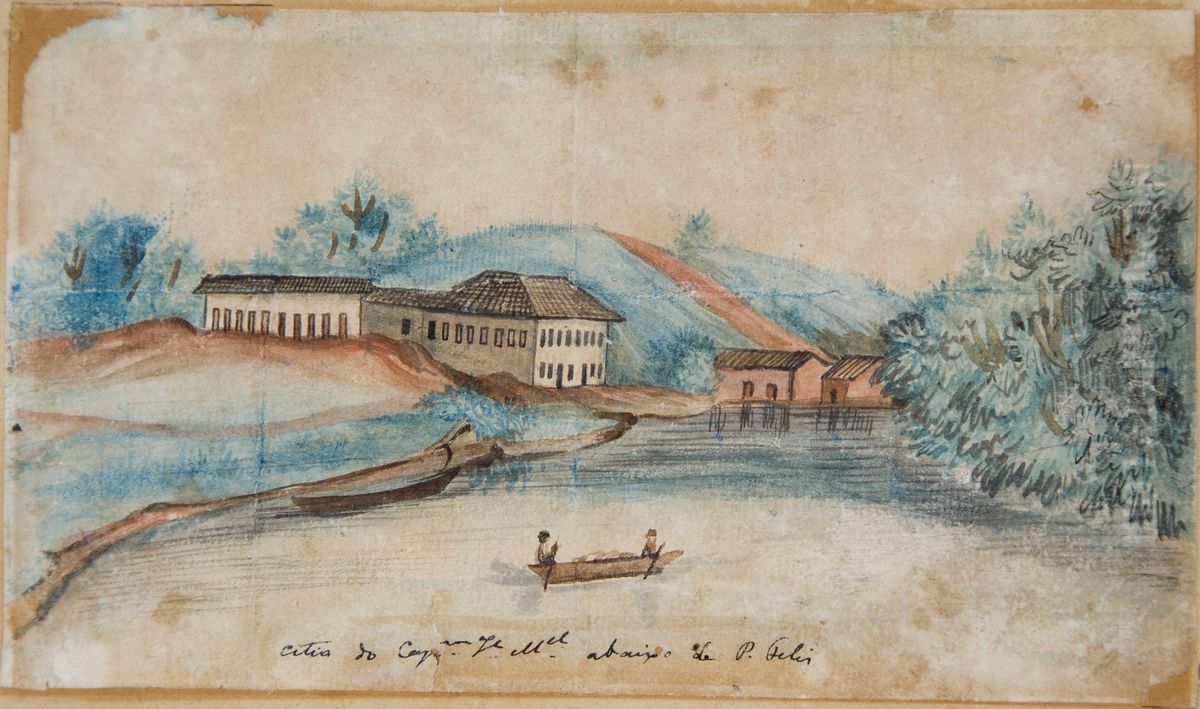 citio do Cap.m Je. Ml. abaixo de P. Felis